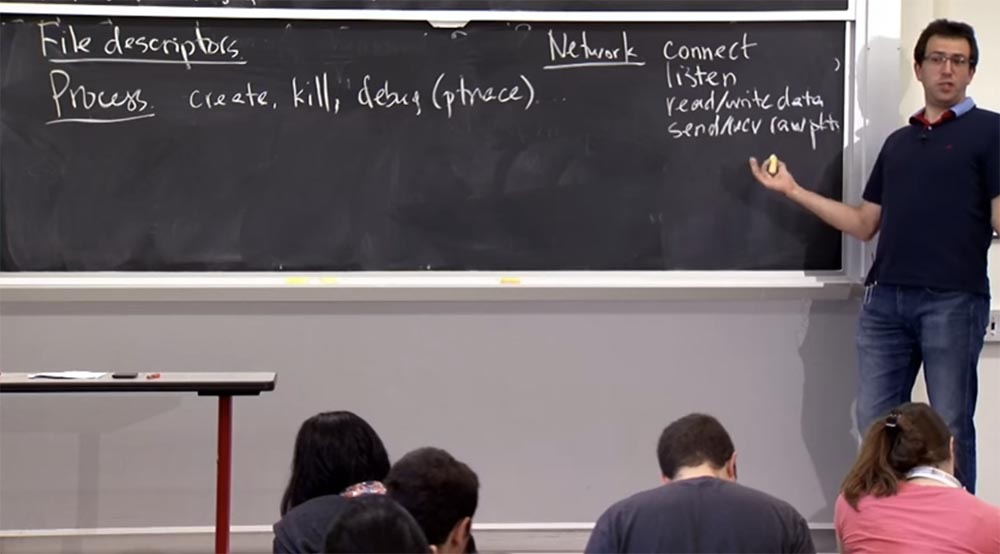 File descriptors.
Process. create, kill, debug (ptrace) ...
Network connect
listen
read/write data
send/recv raw pkts